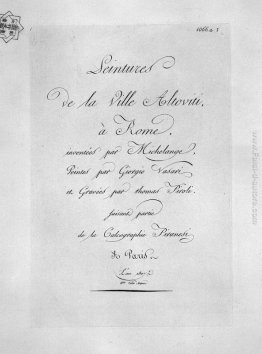 1066 a 1
Peintures
de la Ville Altoviti,
à Rome,
inventées par Michelange,
Peintes par Giorgio Vasari
et Gravées par thomas Piroli.
faisant partie
de la Calcographie Piranesi
à Paris.
L'an